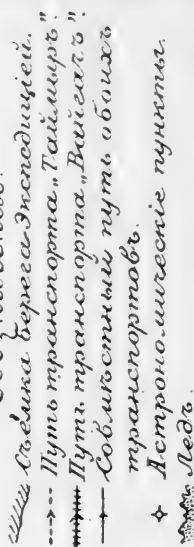 Съемка берега Экспедиціей.
Путь транспорта „Таймыръ"
Путь транспорта „Вайгачъ"
Совмѣстный путь обоихъ
транспортовъ.
Астрономическіе пункты.
Ледъ.